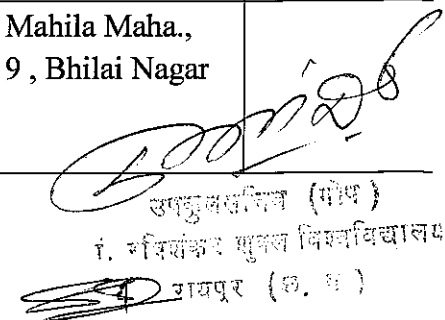 Mahila Maha.,
9 , Bhilai Nagar
उपकुलसचिव (गोप)
पं. रविशंकर शुक्ल विश्वविद्यालय
रायपुर (छ. ग)